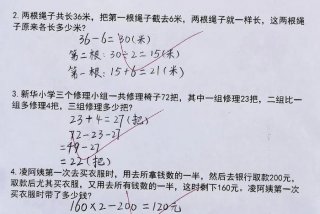 2. 两根绳子共长36米，把第一根绳子截去6米，两根绳子就一样长，这两根绳
子原来各长多少米?
36-6=30(米)
第二根: 30÷2=15(米)
第一根: 15+6=21(米)
3. 新华小学三个修理小组一共修理椅子72把，其中一组修理23把，二组比一
组多修理4把，三组修理多少把?
23+4=27(把)
72-23-27
=49-27
=22(把)
4. 凌阿姨第一次去买衣服时，用去所拿钱数的一半，然后去银行取款200元，
取款后尤其买衣服，又用去所有钱的一半，这时剩下160元，凌阿姨第一次
买衣服时带了多少钱?
160×2-200=120元